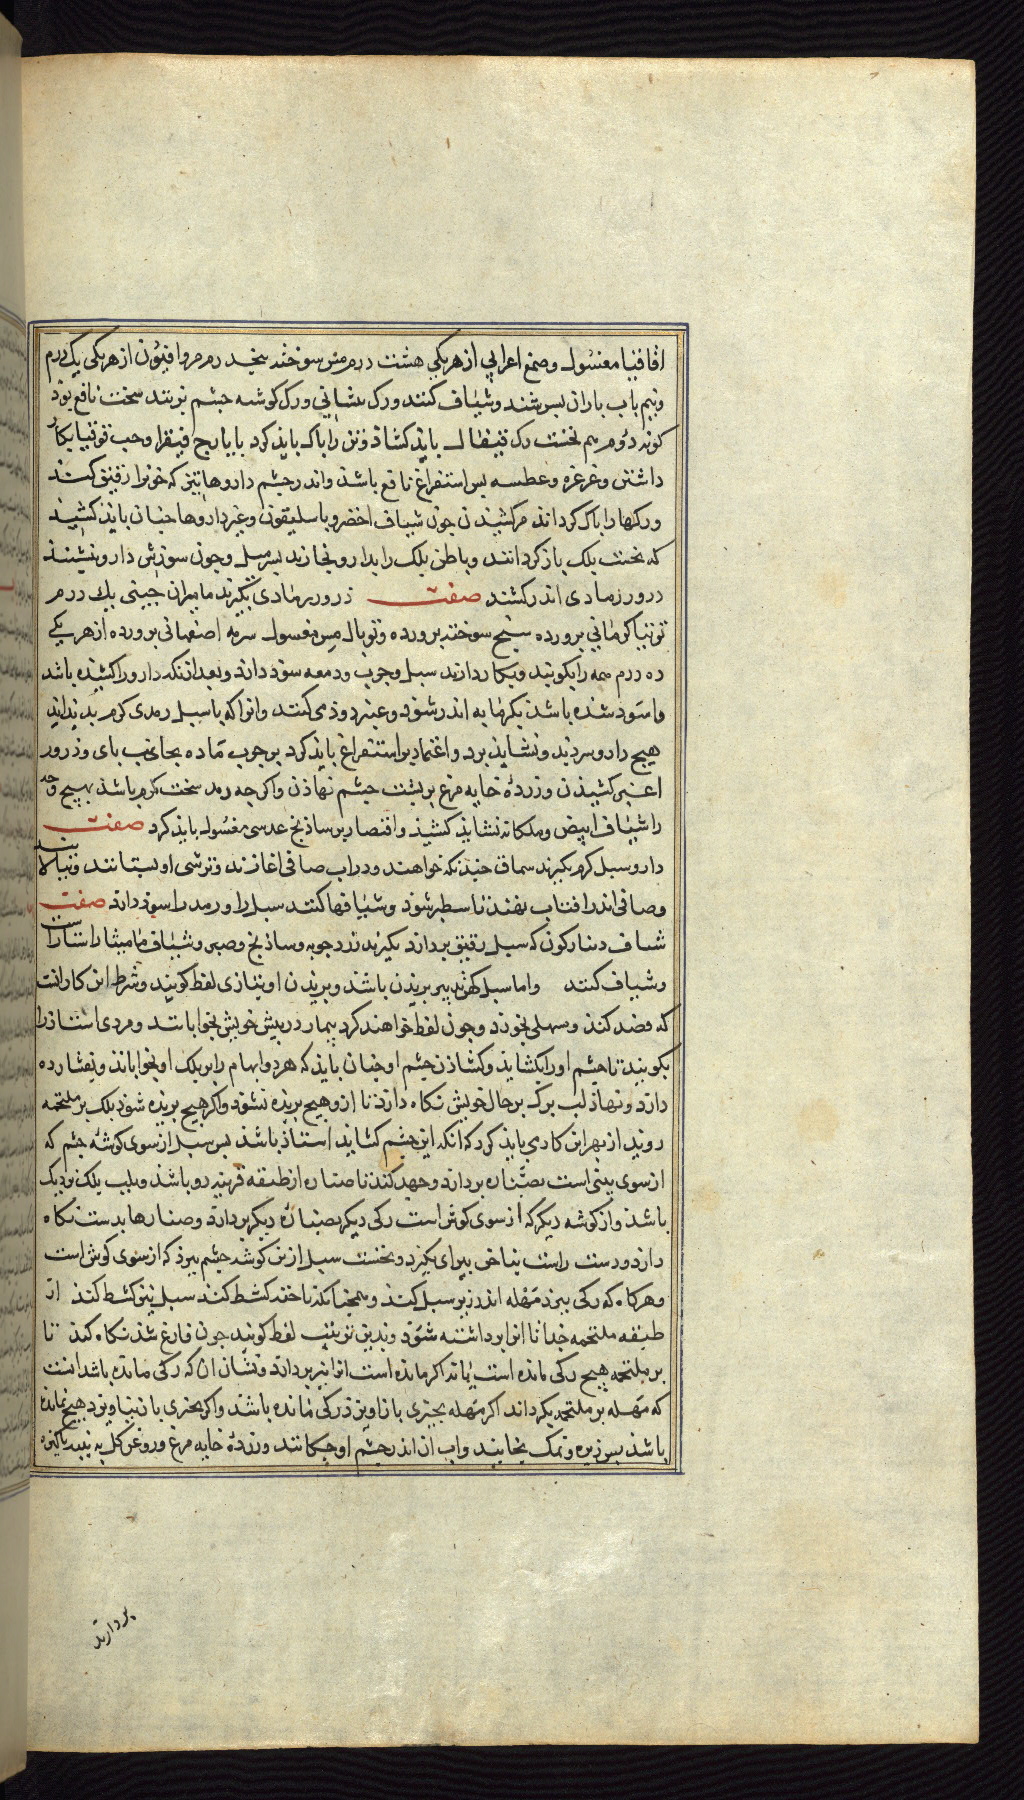 اقاقیا مغسول وصمغ اعرابی از هریکی هشت درم مس سوخته پنجدرم مر وافیون از هریکی یک درم
ونیم باب باران بسرشند وشیاف کنند ورک بشانی ورک کوشه جشم نربند سخت نافع بوذ
کونه دوم هم نخست رک قیفال بایذ کشاذ وتن را باک بایذ کرد بایارج فیقرا وحب قوقیا بکار
داشتن وغرغره وعطسه بس استفراغ نافع باشذ واندر جشم داروهاتیز که خونرا رقیق کند
ورکها را باک کرداند مرکشیذن جون شیاف اخضر وباسلیقون وغیر داروها جنان بایذ کشیذ
که نخست بلک باز کردانند وباطن بلک را بدارو بخارند بسر میل وجون سوزش دارو بنشیند
ذرور رمادی اندر کشند صفت ذرور رمادی بکیرند مامیران جینی یک درم
توتیا کرمانی برورده سنج سوخته برورده وتوبال مس مغسول سرمه اصفهانی برورده از هریکی
ده درم همه را بکوبند وبکار دارند سبل وجرب ودمعه سوذ دارذ وبعد ازنکه دارو را کشیذه باشد
واسوذ شذه باشذ بکرمابه اندر شوذ وعنبر دوذ می کنند وانرا که باسبل رمدی کرم بدید اید
هیج دارو سرد نباشاید برد واعتماد بر استفراغ بایذ کرد برجوب ماده بجانب بای وذرور
اغبر کشیذن وزرده خایه مرغ بربشت جشم نهاذن واکرجه رمد سخت کرم باشذ بهیج وجه
را شیاف ابیض وملکانه نشایذ کشیذ واقتصار بر ساذنج عدسی مغسول بایذ کرد صفت
دارو سبل کرم بکیرند سماق جندنکه خواهند ودراب صافی اغازند وترشی او بستانند وببالایند
وصافی اندر افتاب نهند تا سطبر شوذ وشیافها کنند سبل را ورمد را سوذ دارد صفت
شیاف دینارکون که سبل رقیق بردارد بکیرند زردجوبه وساذنج وصبر وشیاف مامیثا راستاراست
وشیاف کنند واما سبل کهن تدبیر بریذن باشذ وبریذن او بتازی لقط کویند وشرط این کار انست
که فصد کند ومسهلی بخورد وجون لقط خواهند کرد بیمار در بیش خویش بخوابانند ومردی استاذ را
بکویند تا جشم او را بکشاید وکشاذن جشم او جنان بایذ که هردو ابهام را بر بلک او بخواباند وبفشارده
دارد ونهاذ لب برک برحال خویش نکاه دارد تا ازو هیج بریذه نشوذ واکر هیج بریذه شوذ بلک برملتحمه
روید از بهر این کار می بایذ کرد که انکه این جشم کشاید استاذ باشذ بس سبل از سوی کوشه جشم که
از سوی بینی است بصناره بردارد وجهد کند تا صناره از طبقه قرنیه دور باشذ وبلب بلک نزدیک
باشذ واز کوشه دیکر که از سوی کوش است رکی دیکر بصناره دیکر بردارد وصنارها بدست نکاه
دارد ودست راست بناخن بیرای بکیرد ونخست سبل ازین کوشه جشم ببرذ که از سوی کوش است
وهرکاه که رکی ببرذ مهله اندر زیر سبل کند وهمجنانکه ناخنه کشط کند سبل نیز کشط کند از
طبقه ملتحمه جدا تا انرا برداشته شوذ وبدین ترتیب لقط کویند جون فارغ شذ نکاه کند تا
بر ملتحمه هیج رکی مانده است یا نه اکر مانده است انرا نیز بردارد ونشان ان که رکی مانده باشد انست
که مهله بر ملتحمه بکرداند اکر مهله بجیزی باز اویزذ رکی مانده باشذ واکر بجیزی باز نیاویزد هیج نمانده
باشذ بس زیره ونمک بخایند واب ان اندر جشم او جکانند وزرده خایه مرغ وروغن کل به بنبه باکیزه
بردارند